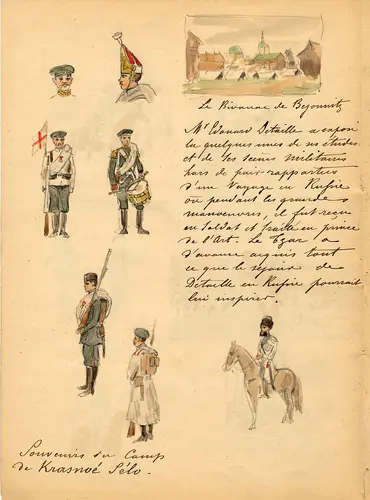 Le Bivouac de Bezonnitz
Mr Edouard Detaille a exposé
là quelques unes de ses études
et de les scènes militaires
hors de pair rapportées
d'un Voyage en Russie
où pendant les grandes
manoeuvres, il fut reçu
en soldat et traité en prince
de l'Art. Le Tzar a
d'avance acquis tout
ce que le séjour de
Détaille en Russie pourrait
lui inspirer.
Souvenirs du Camp
de Krasnoé Sélo.